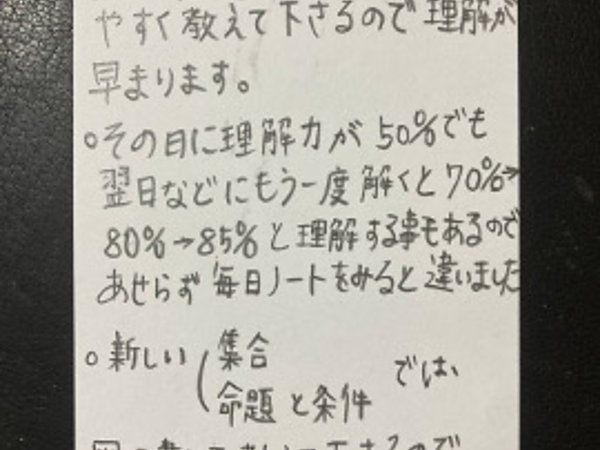 やすく教えて下さるので理解が
早まります。
○その日に理解力が50%でも
翌日などにもう一度解くと70%→
80%→85%と理解する事もあるので
あせらず毎日ノートをみると違いました
○新しい(集合
命題と条件 では、